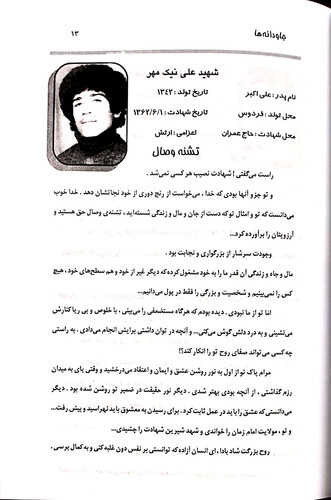 جاودانه‌ها
۱۳
شهید علی نیک مهر
نام پدر : علی اکبر
تاریخ تولد : ۱۳۴۲
محل تولد : فردوس
تاریخ شهادت : ۱۳۶۲/۶/۱
محل شهادت : حاج عمران
اعزامی : ارتش
تشنه وصال
راست می‌گفتی ! شهادت نصیب هر کسی نمی‌شد .
و تو جزو آنها بودی که خدا ، می‌خواست از رنج دوری از خود نجاتشان دهد . خدا خوب
می‌دانست که تو و امثال تو که دست از جان و مال و زندگی شسته‌اید ، تشنه‌ی وصال حق هستید و
آرزویتان را برآورده کرد...
وجودت سرشار از بزرگواری و نجابت بود .
مال و جاه و زندگی آن قدر ما را به خود مشغول کرده که دیگر غیر از خود و هم سطح‌های خود ، هیچ
کس را نمی‌بینیم و شخصیت و بزرگی را فقط در پول می‌دانیم...
اما تو از ما نبودی . دیده بودم که هرگاه مستضعفی را می‌بینی ، با خلوص و بی ریا کنارش
می‌نشینی و به درد دلش گوش می‌کنی... و آنچه در توان داشتی برایش انجام می‌دادی . به راستی
چه کسی می‌تواند صفای روح تو را انکار کند؟!
مرام پاک تو از اول به نور روشن عشق و ایمان و اعتقاد می‌درخشید و وقتی پای به میدان
رزم گذاشتی ، از آنچه بودی بهتر شدی . دیگر نور حقیقت در ضمیر تو روشن شده بود . دیگر
می‌دانستی که عشق را باید در عمل ثابت کرد . برای رسیدن به معشوق باید نهراسید و پیش رفت...
و تو ، مولایت امام زمان را خواندی و شهد شیرین شهادت را چشیدی...
روح بزرگت شاد باد! ، ای انسان آزاده که توانستی بر نفس دون غلبه کنی و به کمال برسی .